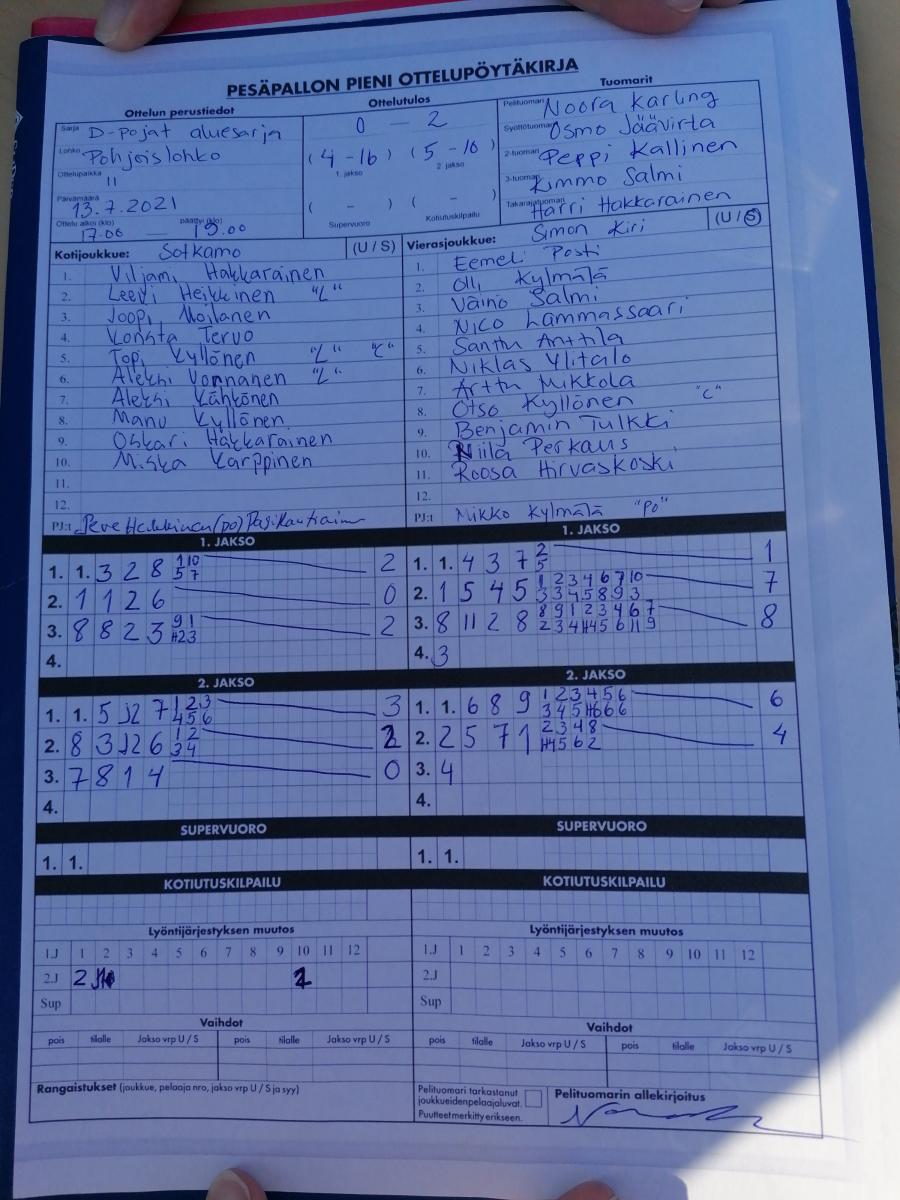 PESÄPALLON PIENI OTTELUPÖYTÄKIRJA
Ottelun perustiedot
Ottelutulos
Tuomarit
Sarja D-pojat aluesarja
Lohko Pohjoislohko
Ottelupaikka 11
Päivämäärä 13.7.2021
Ottelu alkoi (klo) 17.00 — päättyi (klo) 19.00
0 - 2
(4 - 16) (5 - 10)
1. jakso 2. jakso
( - ) ( - )
Supervuoro Kotiutuskilpailu
Pelituomari Noora Karling
Syöttötuomari Osmo Jäävirta
2-tuomari Peppi Kallinen
3-tuomari Kimmo Salmi
Takarajatuomari Harri Hakkarainen
Kotijoukkue: Sotkamo (U / S)
1. Viljami Hakkarainen
2. Leevi Heikkinen "L"
3. Joopi Moilanen
4. Konsta Tervo
5. Topi Kyllönen "L" "C"
6. Aleksi Vornanen "L"
7. Aleksi Kähkönen
8. Manu Kyllönen
9. Oskari Hakkarainen
10. Miska Karppinen
11.
12.
PJ:t Heikkinen (po)
Vierasjoukkue: Simon Kiri (U / S)
1. Eemeli Posti
2. Olli Kylmälä
3. Väinö Salmi
4. Nico Lammassaari
5. Santtu Anttila
6. Niklas Ylitalo
7. Arttu Mikkola
8. Otso Kyllönen "C"
9. Benjamin Tulkki
10. Niila Perkaus
11. Roosa Hirvaskoski
12.
PJ:t Mikko Kylmälä "PO"
1. JAKSO
1. 1. 3 2 8 1 10 2
5 7
2. 1 1 2 6 0
3. 8 8 2 3 9 1 2
H2 3
4.
1. JAKSO
1. 1. 4 3 7 2 1
5
2. 1 5 4 5 1 2 3 4 6 7 10 7
3 3 4 5 8 9 3
3. 8 11 2 8 8 9 1 2 3 4 6 7 8
2 3 4 H4 5 6 11 9
4. 3
2. JAKSO
1. 1. 5 J2 7 1 2 3 3
4 5 6
2. 8 3 J2 6 1 2 2
3 4
3. 7 8 1 4 0
4.
2. JAKSO
1. 1. 6 8 9 1 2 3 4 5 6 6
3 4 5 H6 6 6
2. 2 5 7 1 2 3 4 8 4
H4 5 6 2
3. 4
4.
SUPERVUORO
1. 1.
SUPERVUORO
1. 1.
KOTIUTUSKILPAILU
KOTIUTUSKILPAILU
Lyöntijärjestyksen muutos
1.J 1 2 3 4 5 6 7 8 9 10 11 12
2.J 2 1
Sup
Lyöntijärjestyksen muutos
1.J 1 2 3 4 5 6 7 8 9 10 11 12
2.J
Sup
Vaihdot
pois tilalle Jakso vrp U / S pois tilalle Jakso vrp U / S
Vaihdot
pois tilalle Jakso vrp U / S pois tilalle Jakso vrp U / S
Rangaistukset (joukkue, pelaaja nro, jakso vrp U / S ja syy)
Pelituomari tarkastanut
joukkueidenpelaajaluvat.
Puutteetmerkitty erikseen.
Pelituomarin allekirjoitus